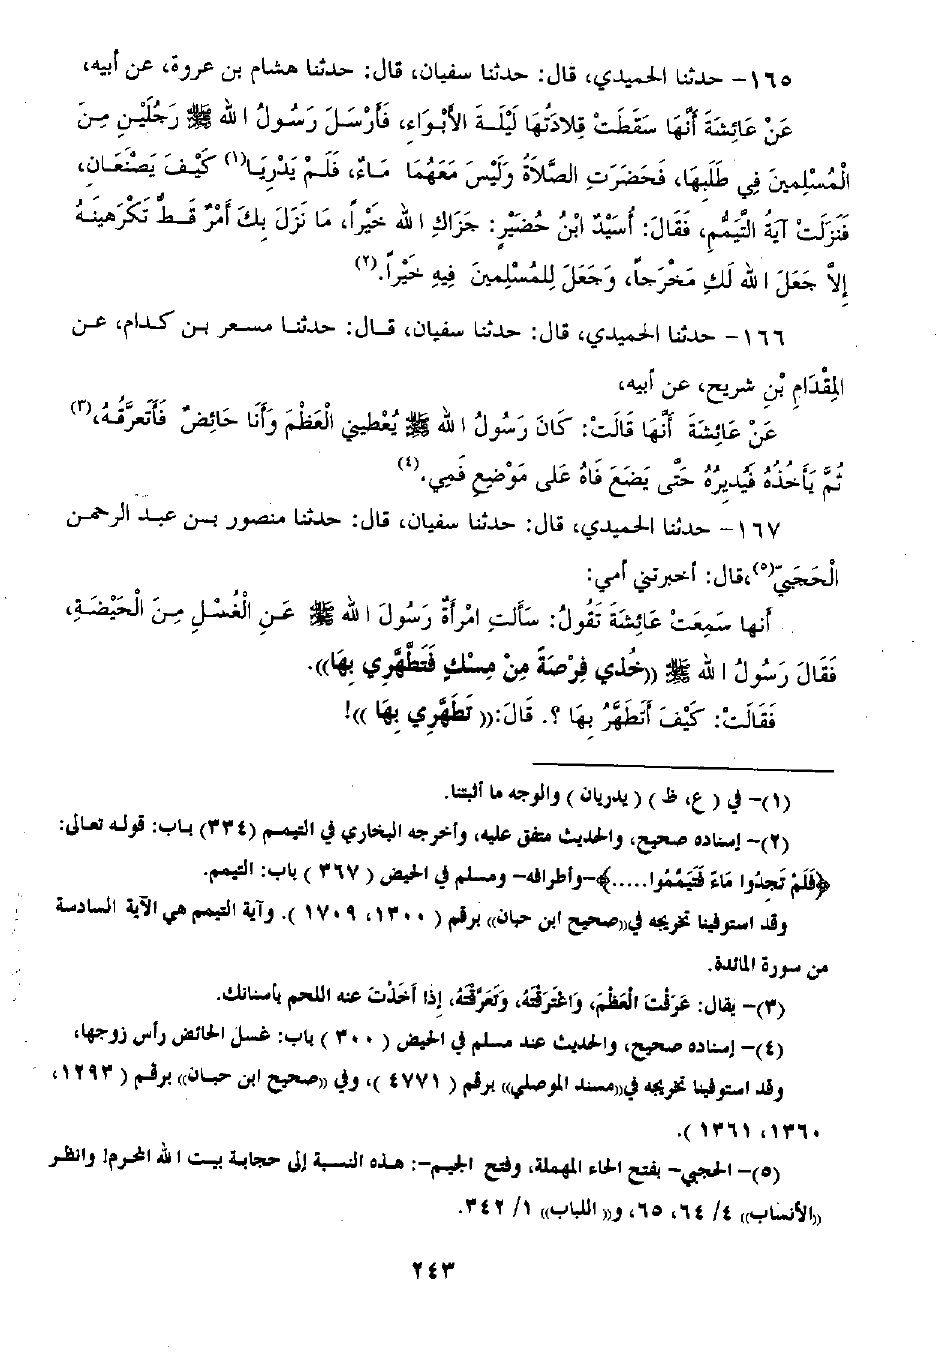 ١٦٥- حدثنا الحميدي، قال: حدثنا سفيان، قال: حدثنا هشام بن عروة، عن أبيه،
عَنْ عَائِشَةَ أَنَّهَا سَقَطَتْ قِلادَتُهَا لَيْلَـةَ الأَبْـوَاءِ، فَأَرْسَلَ رَسُولُ الله ﷺ رَجُلَيْنِ مِـنَ
الْمُسْلِمِينَ فِي طَلَبِهَا، فَحَضَرَتِ الصَّلاَةُ وَلَيْسَ مَعَهُمَا مَـاءٌ، فَلَـمْ يَدْرِيَـا(١) كَيْـفَ يَصْنَعَـانِ،
فَنَزَلَتْ آيَةُ التَّيَمُّمِ، فَقَالَ: أُسَيْدُ ابْنُ حُضَيْرٍ: جَزَاكِ الله خَيْراً، مَا نَزَلَ بِكَ أَمْرٌ قَـطُّ تَكْرَهِينَـهُ
إِلاَّ جَعَلَ الله لَكِ مَخْرَجاً، وَجَعَلَ لِلمُسْلِمِينَ فِيهِ خَيْراً.(٢)
١٦٦- حدثنا الحميدي، قال: حدثنا سفيان، قـال: حدثنـا مسعر بـن كـدام، عـن
المِقْدَامِ بْنِ شريح، عن أبيه،
عَنْ عَائِشَةَ أَنَّهَا قَالَتْ: كَانَ رَسُولُ الله ﷺ يُعْطِينِي الْعَظْمَ وَأَنَا حَائِضٌ فَأَتَعرَّقُـهُ،(٣)
ثُمَّ يَأخُذُهُ فَيُدِيرُهُ حَتَّى يَضَعَ فَاهُ عَلى مَوْضِعِ فَمِي.(٤)
١٦٧- حدثنا الحميدي، قال: حدثنا سفيان، قال: حدثنا منصور بـن عبـد الرحمـن
الْحَجَبِيّ(٥)،قال: أخبرتني أمي:
أنها سَمِعَتْ عَائِشَةَ تَقُولُ: سَألَتِ امْرأَةٌ رَسُولَ الله ﷺ عَـنِ الْغُسْـلِ مِـنَ الْحَيْضَـةِ،
فَقَالَ رَسُولُ الله ﷺ ((خُذي فِرْصَةً مِنْ مِسْكٍ فَتَطَهَّرِي بِهَا)).
فَقَالَتْ: كَيْفَ أَتَطَهَّرُ بِهَا ؟. قَالَ:(( تَطَهَّرِي بِهَا ))!
(١)- في ( ع، ظ ) ( يدريان ) والوجه ما أثبتنا.
(٢)- إسناده صحيح، والحديث متفق عليه، وأخرجه البخاري في التيمم (٣٣٤) بـاب: قولـه تعـالى:
﴿فَلَمْ تَجِدُوا مَاءً فَتَيَمَّمُوا.....﴾-وأطرافه- ومسلم في الحيض ( ٣٦٧ ) باب: التيمم.
وقد استوفينا تخريجه في((صحيح ابن حبان)) برقم ( ١٣٠٠، ١٧٠٩ ). وآية التيمم هي الآية السادسة
من سورة المائدة.
(٣)- يقال: عَرَقْتَ الْعَظْمَ، وَاعْتَرَقْتَهُ، وَتَعَرَّقْتَهُ، إذَا أخَذْتَ عنه اللحم بأسنانك.
(٤)- إسناده صحيح، والحديث عند مسلم في الحيض ( ٣٠٠ ) باب: غسل الحائض رأس زوجها،
وقد استوفينا تخريجه في((مسند الموصلي)) برقم ( ٤٧٧١ )، وفي ((صحيح ابن حبـان)) برقـم ( ١٢٩٣،
١٣٦٠، ١٣٦١ ).
(٥)- الحجبي- بفتح الحاء المهملة، وفتح الجيم-: هـذه النسبة إلى حجابـة بيـت الله المحرم! وانظـر
((الأنساب)) ٤/ ٦٤، ٦٥، و(( اللباب)) ١/ ٣٤٢.
٢٤٣